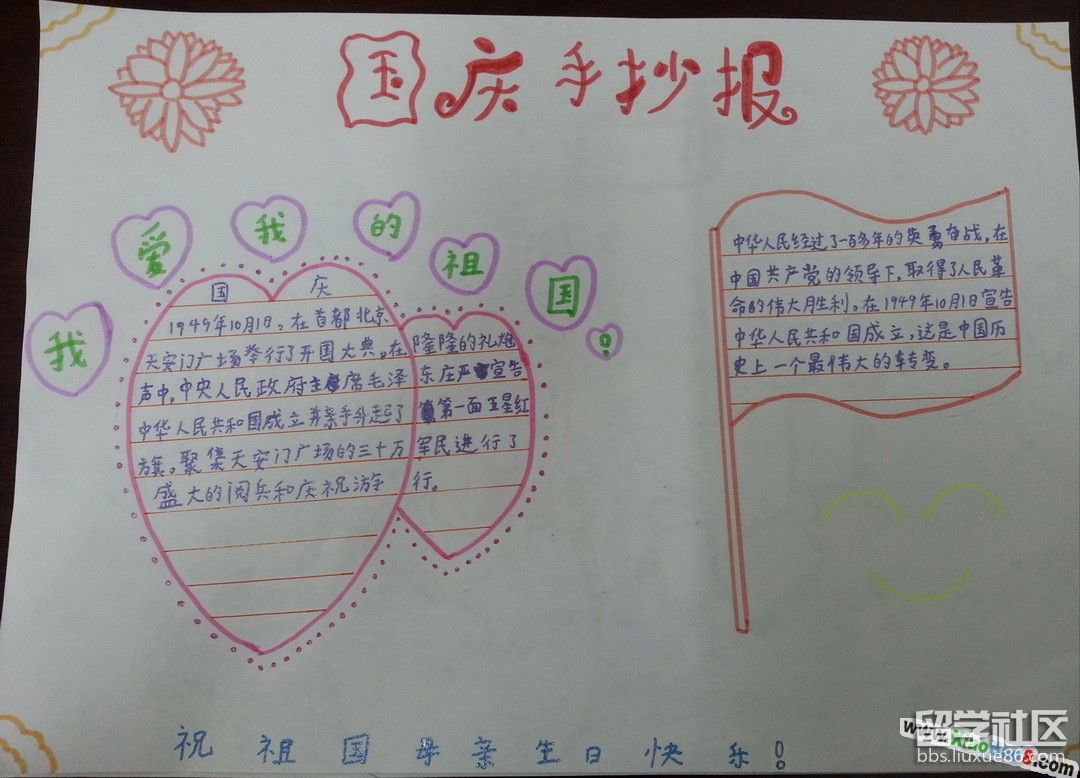 国庆手抄报
我爱我的祖国!
国庆
1949年10月1日，在首都北京
天安门广场举行了开国大典，在隆隆的礼炮
声中，中央人民政府主席毛泽东庄严宣告
中华人民共和国成立并亲手升起了第一面五星红
旗。聚集天安门广场的三十万军民进行了
盛大的阅兵和庆祝游行。
中华人民经过了一百多年的英勇奋战，在
中国共产党的领导下，取得了人民革
命的伟大胜利。在1949年10月1日宣告
中华人民共和国成立，这是中国历
史上一个最伟大的转变。
祝祖国母亲生日快乐!
留学社区
bbs.liuxue86.com